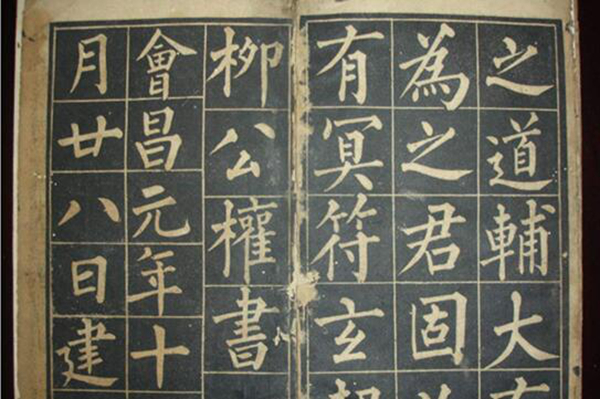 之道輔大
為之君固
有冥符玄
柳公權書
會昌元年十
月廿八日建